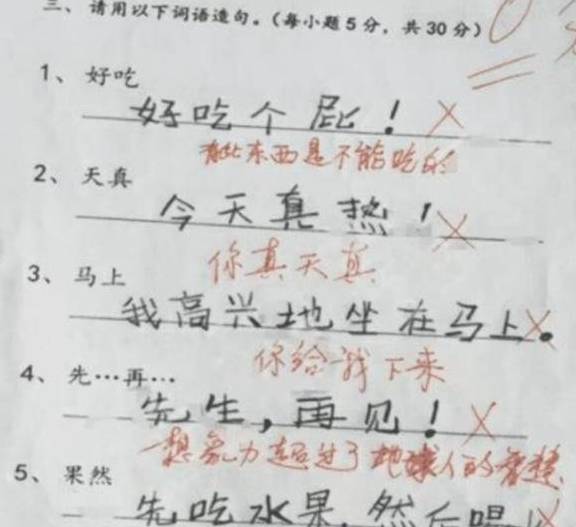 三、请用以下词语造句。(每小题5分，共30分)
1、好吃
好吃个屁！
有些东西是不能吃的
2、天真
今天真热！
你真天真
3、马上
我高兴地坐在马上。
你给我下来
4、先…再…
先生，再见！
想象力超过了地球人的智慧
5、果然
先吃水果，然后喝